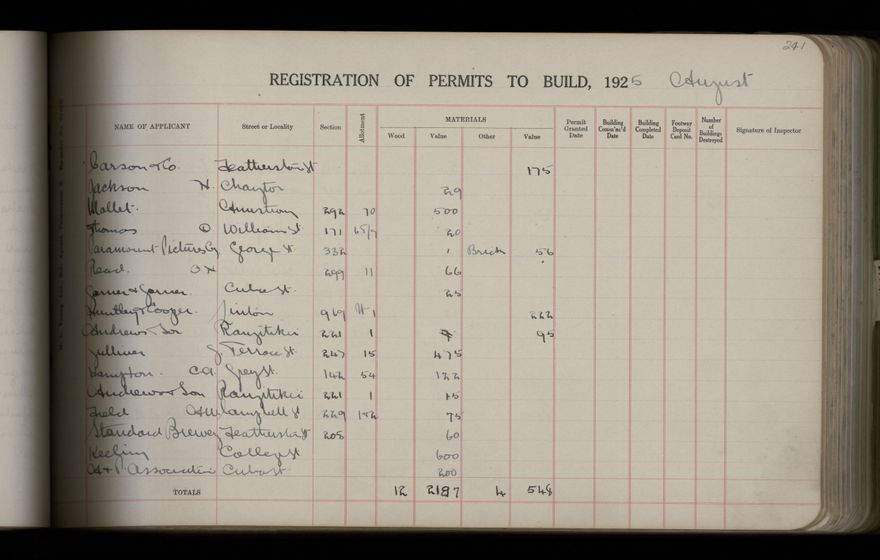 241
REGISTRATION OF PERMITS TO BUILD, 1925 August
NAME OF APPLICANT Street or Locality Section Allotment MATERIALS Permit Granted Date Building Comm'nc'd Date Building Completed Date Footway Deposit Card No. Number of Buildings Destroyed Signature of Inspector
Wood Value Other Value
Carson & Co. Featherston St 175
Jackson H. Chaytor 29
Mallet. 292 70 500
Thomas D William St 171 20
Paramount Pictures Coy George St 332 Brick 56
Read. O H 299 11 66
Garner & Garner. Cuba St. 25
Huntley & Cooper. Linton 969 222
Andrews & Son Rangitikei 221 1 95
Gulliver J Terrace St. 247 15 475
Hampton. C.A. Grey St. 142 54 122
Andrews & Son Rangitikei 221 1 15
Field Campbell St 229 75
Standard Brewery Featherston St 205 60
Keeling College St 600
A & P. Association Cuba St 200
TOTALS 12 2187 4 548